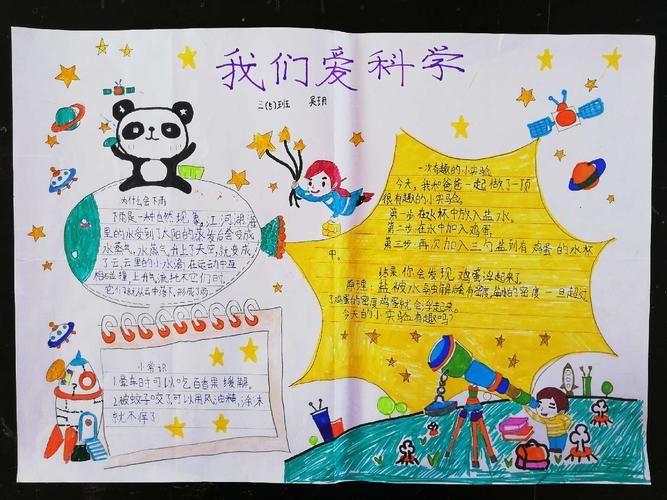 我们爱科学
三(5)班 吴玥
为什么会下雨
下雨是一种自然现象,江河湖海
里的水受到了太阳的蒸发后会变成
水蒸气,水蒸气升上了天空,就变成
了云,云里的小水滴在运动中互
相碰撞,上升气流托不它们时,
它们就从云中落下,形成了雨
小常识
1.晕车时可以吃百香果缓解。
2.被蚊子咬了可以用风油精,涂木
就不痒了
一次有趣的小实验
今天,我和爸爸一起做了一项
很有趣的小实验。
第一步:在水杯中放入盐水。
第二步:在水中加入鸡蛋,
第三步:再次加入三勺盐到有鸡蛋的水杯
中。
结果:你会发现鸡蛋浮起来了
原理:盐被水融解会有密度,盐的密度一旦超过
了鸡蛋的密度鸡蛋就会浮起来。
今天的小实验有趣吗?